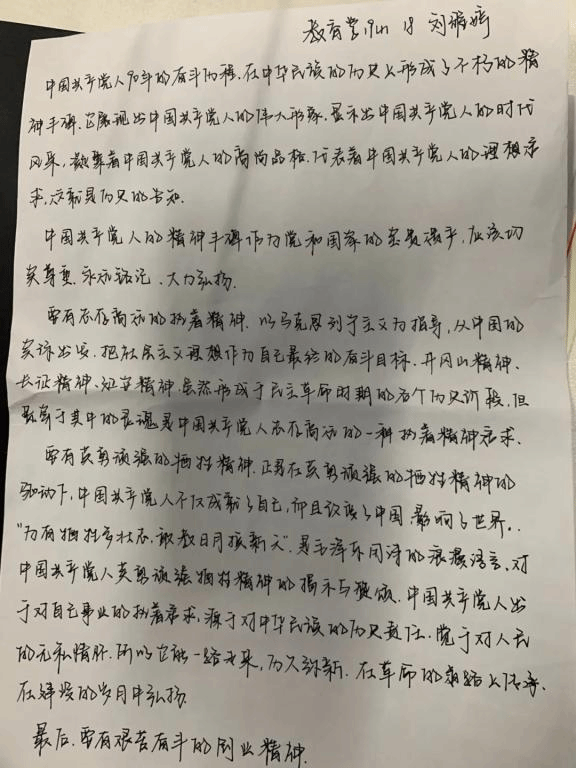 教育学19本 18 刘
中国共产党人90年的奋斗历程,在中华民族的历史上形成了不朽的精
神丰碑,它展现出中国共产党人的伟大形象,显示出中国共产党人的时代
风采,凝聚着中国共产党人的高尚品格,代表着中国共产党人的理想追
求,这就是历史的告知.
中国共产党人的精神丰碑作为党和国家的宝贵遗产,应该切
实尊重、永远铭记、大力弘扬.
要有志存高远的执着精神.以马克思列宁主义为指导,从中国的
实际出发,把社会主义理想作为自己最终的奋斗目标.井冈山精神、
长征精神、延安精神.虽然形成于民主革命时期的各个历史阶段,但
贯穿于其中的灵魂是中国共产党人志存高远的一种执着精神追求.
要有英勇顽强的牺牲精神.正是在英勇顽强的牺牲精神的
驱动下,中国共产党人不仅成就了自己,而且改变了中国,影响了世界.
"为有牺牲多壮志,敢教日月换新天",是毛泽东同志的浪漫语言,对
中国共产党人英勇顽强牺牲精神的揭示与赞颂.中国共产党人出
于对自己事业的执着追求,源于对中华民族的历史责任,党于对人民
的无私情怀.所以它能一路走来,历久弥新.在革命的道路上传承.
在建设的岁月中弘扬.
最后.要有艰苦奋斗的创业精神.